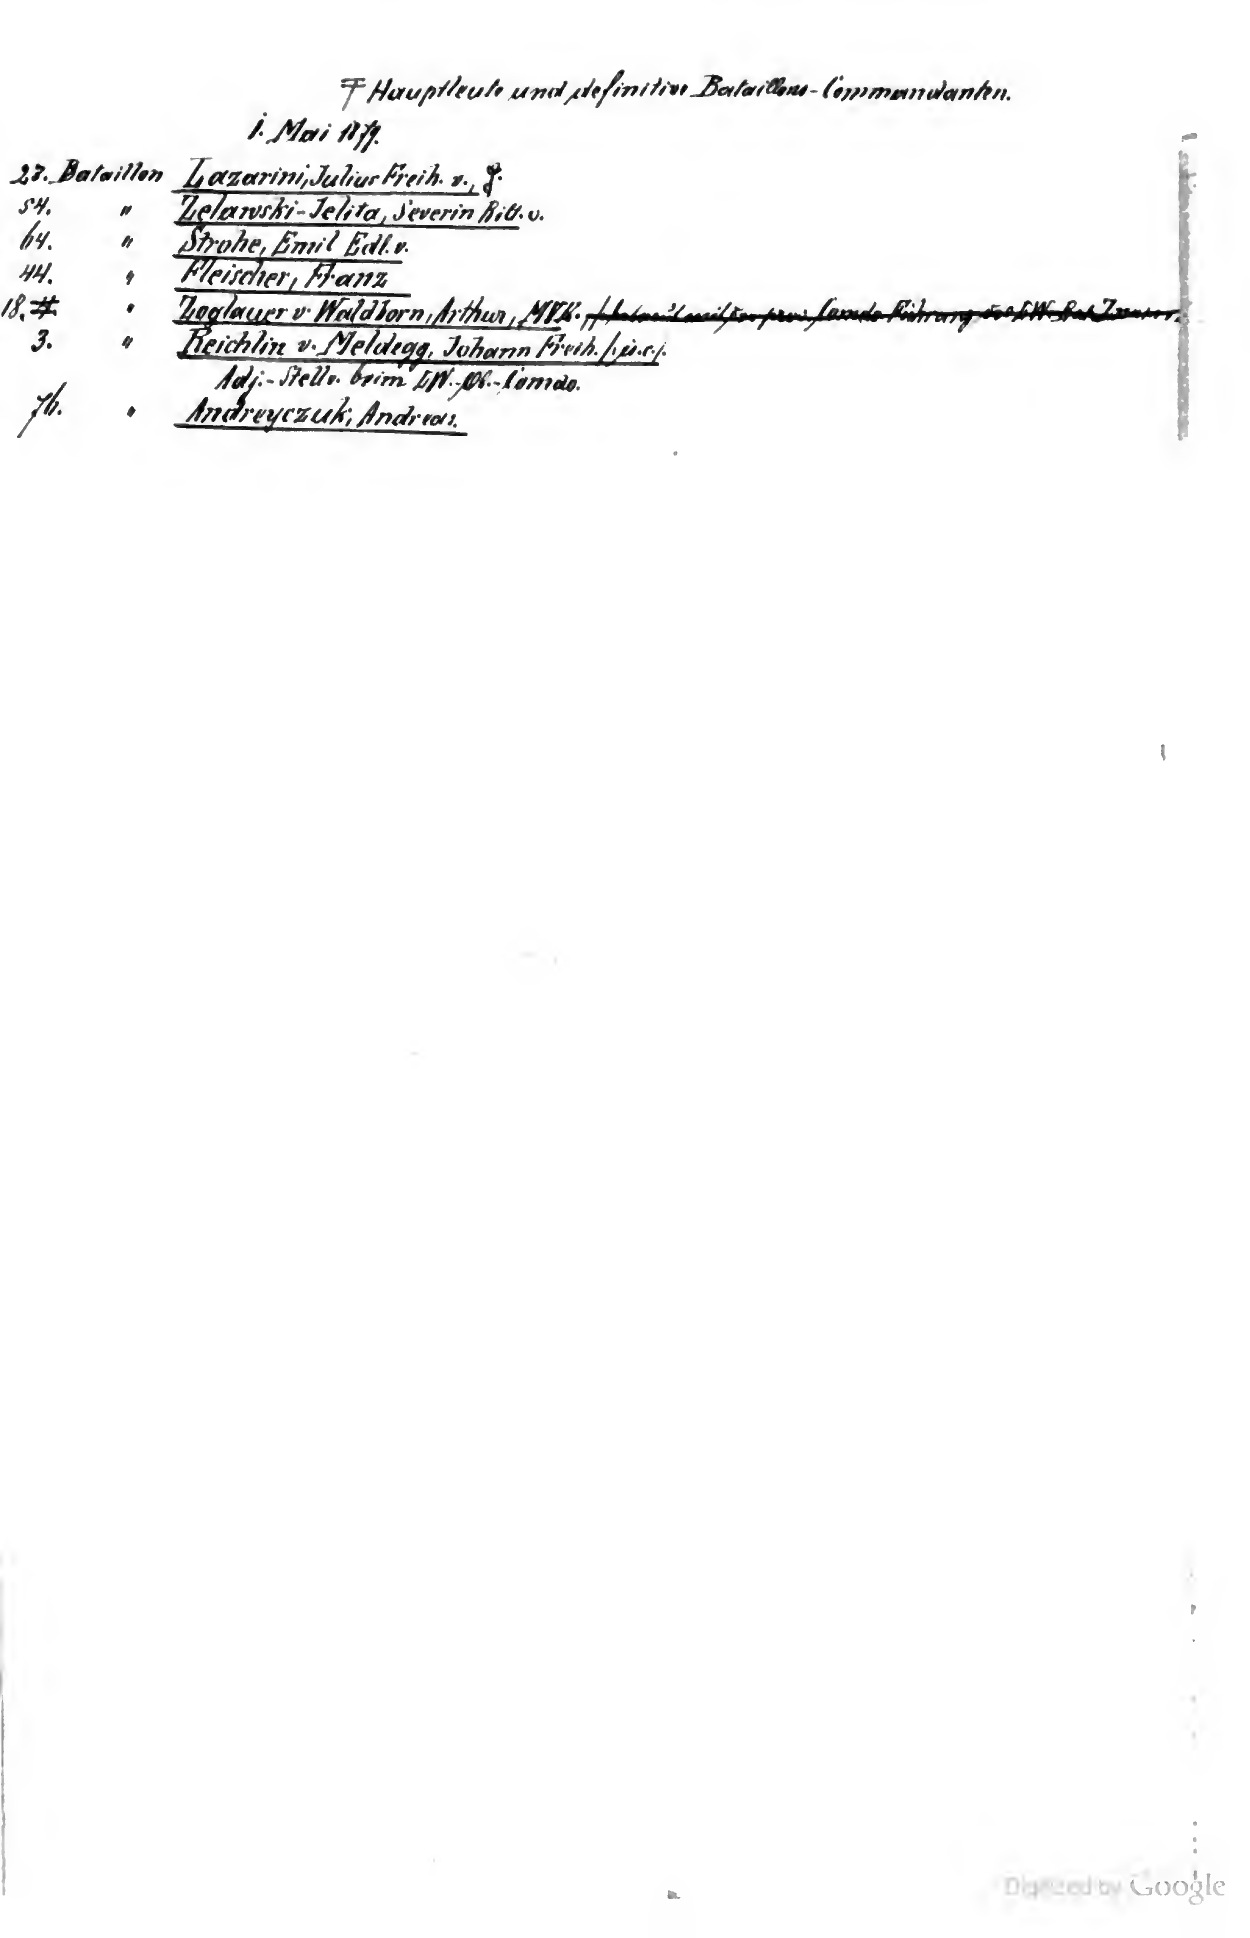 Hauptleute und definitive Bataillons-Commandanten.
1. Mai 1879.
27. Bataillon Lazarini, Julius Freih. v.,
54. " Zelawski-Jelita, Severin Ritt. v.
64. " Strohe, Emil Edl. v.
44. " Fleischer, Franz
18. " Zoglauer v. Waldborn, Arthur, MVK. Führung
3. " Reichlin v. Meldegg, Johann Freih. /:ü.c:/.
Adj.-Stellv. beim LW.-Ob.-Comdo.
76. " Andreyczuk, Andreas.
Digitized by Google